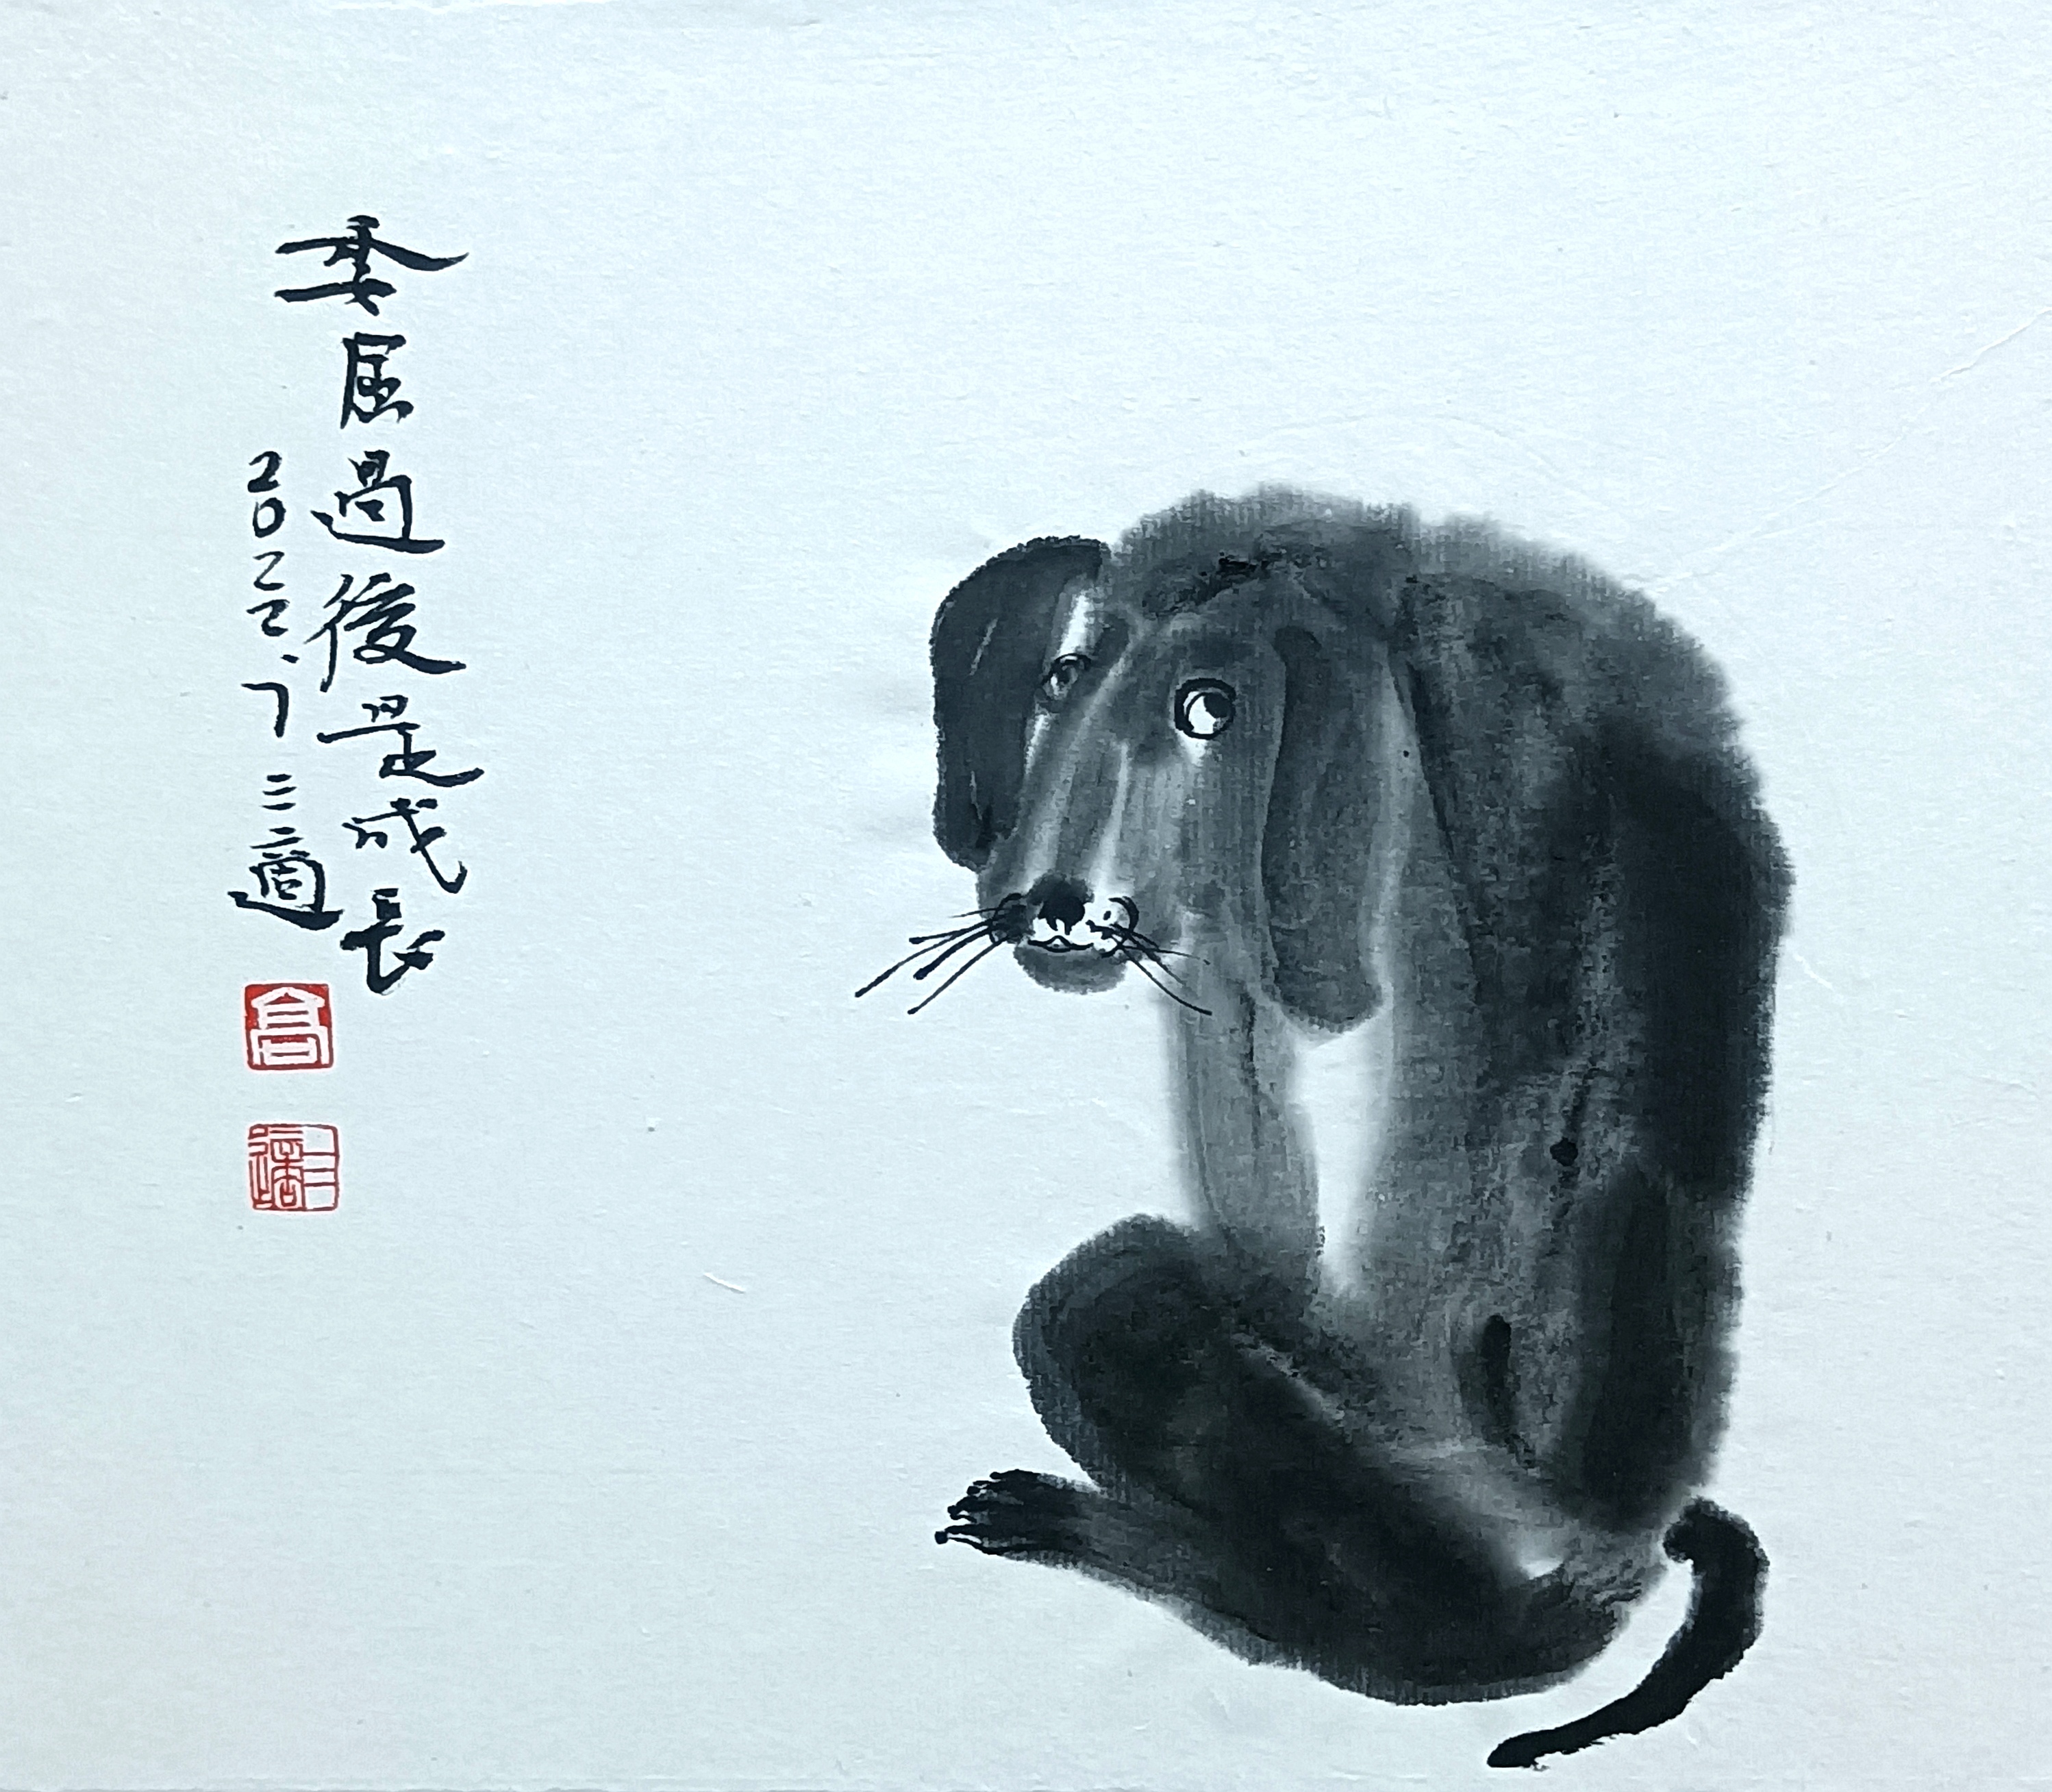 委屈過後是成長
2022.7 三適
高
三适